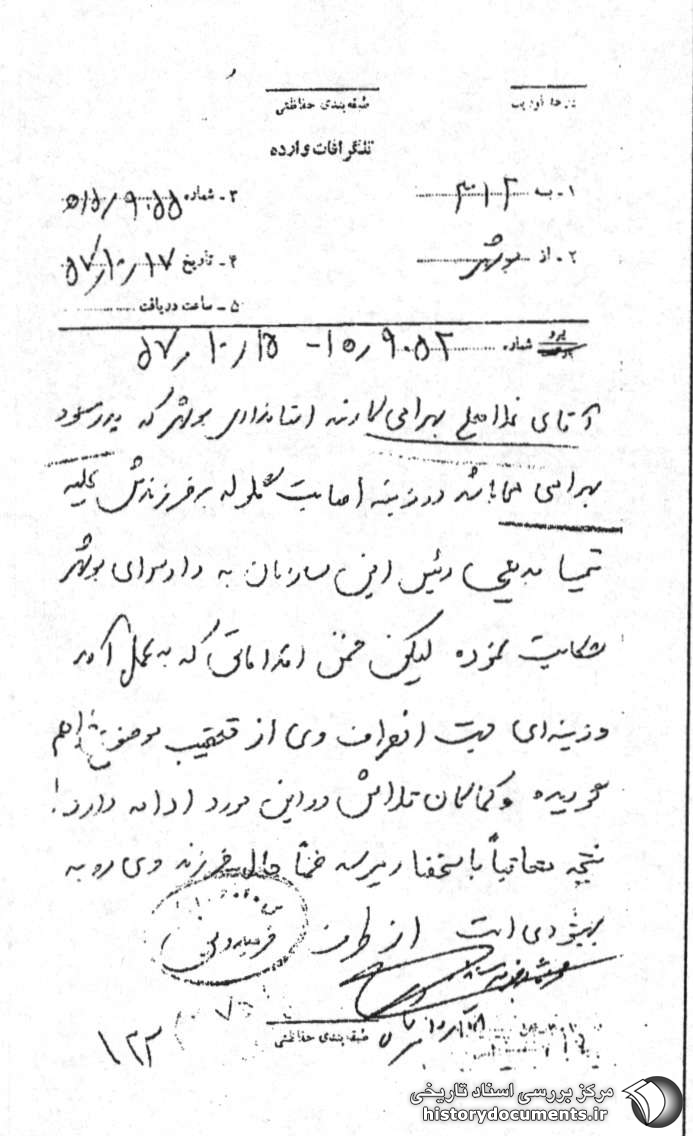 درجه فوریت
طبقه‌بندی حفاظتی
تلگرافات وارده
۱ - ب ۳۰۱۲
۳ - شماره ۵۱۵/۹۰۵۵
۲ - از بوشهر
۴ - تاریخ ۵۷/۱۰/۱۷
۵ - ساعت دریافت
پیرو شماره ۱۵/۹۰۵۲ - ۵۷/۱۰/۱۵
آقای غلامعلی بهرامی کارمند استانداری بوشهر که پدر مسعود
بهرامی می‌باشد در زمینه اصابت گلوله به فرزندش علیه
تیمسار مدیحی رئیس این سازمان به دادسرای بوشهر
شکایت نموده لیکن ضمن اقداماتی که به عمل آمد
زمینه‌ای جهت انصراف وی از تعقیب موضوع فراهم
گردیده و کماکان تلاش در این مورد ادامه دارد!
نتیجه متعاقباً باستحضار میرسد ضمناً حال فرزند وی رو به
بهبودی است از طرف
طبقه‌بندی حفاظتی
۱۲۲
مرکز بررسی اسناد تاریخی
historydocuments.ir